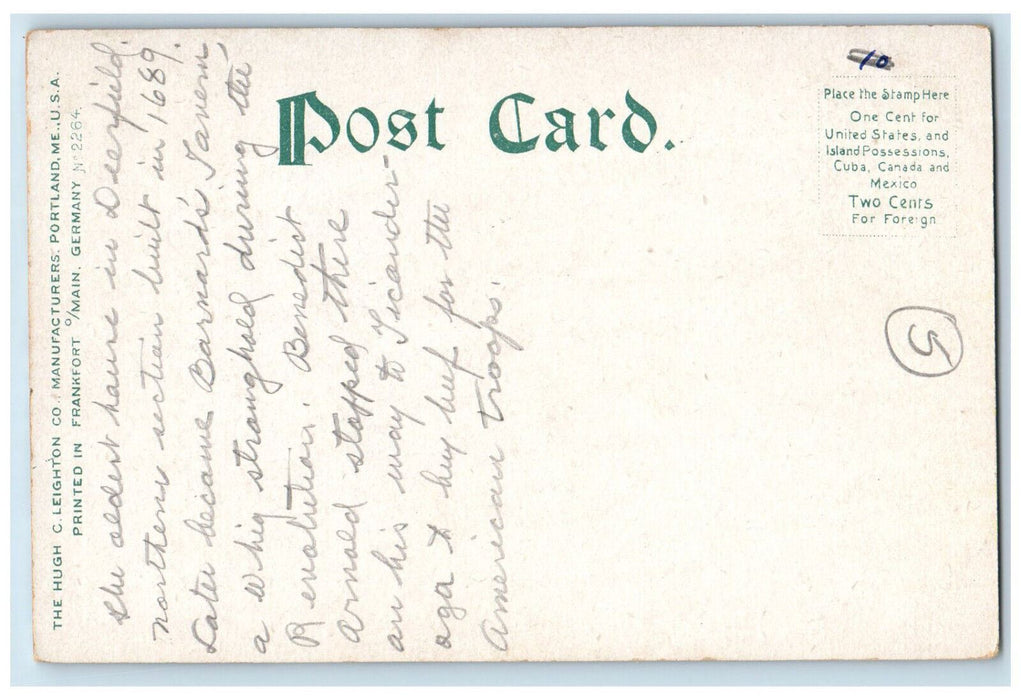 THE HUGH C. LEIGHTON CO., MANUFACTURERS, PORTLAND, ME., U.S.A.
PRINTED IN FRANKFORT o/MAIN, GERMANY No 2264.
The oldest house in Deerfield.
northern section built in 1689.
Later became Barnard's Tavern
a whig stronghold during the
Revolution. Benedict
Arnold stopped there
on his way to Ticonder-
oga & buy beef for the
American troops.
Post Card.
10
Place the Stamp Here
One Cent for
United States, and
Island Possessions,
Cuba, Canada and
Mexico
Two Cents
For Foreign
5